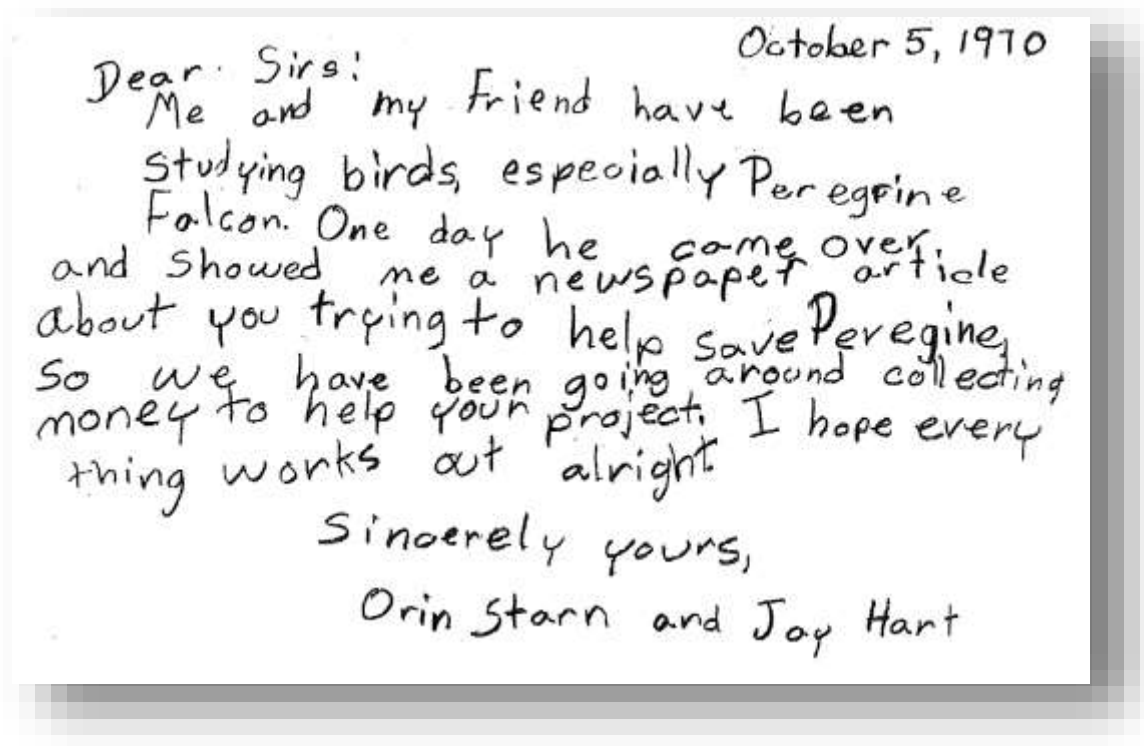 October 5, 1970
Dear Sirs:
Me and my Friend have been
Studying birds, especially Peregrine
Falcon. One day he came over
and showed me a newspaper article
about you trying to help save Peregine,
So we have been going around collecting
money to help your project. I hope every
thing works out alright
Sincerely yours,
Orin Starn and Jay Hart